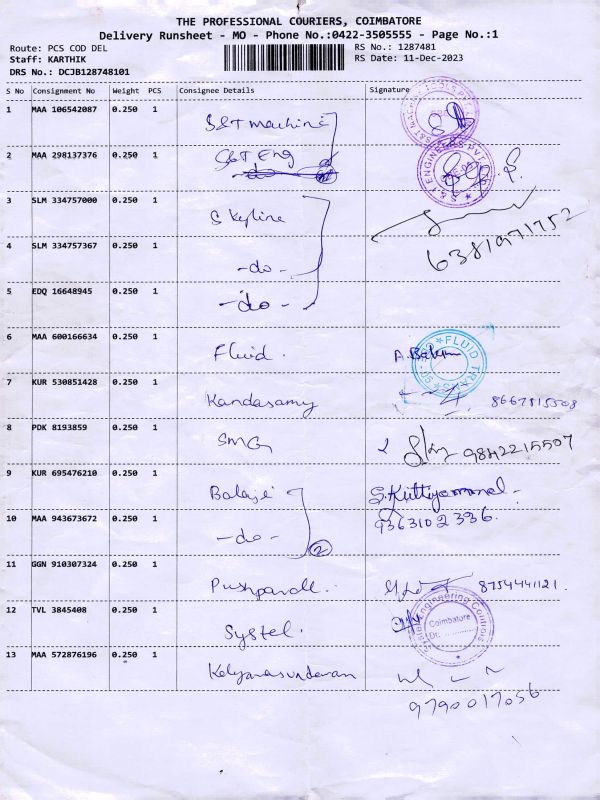 THE PROFESSIONAL COURIERS, COIMBATORE
Delivery Runsheet - MO - Phone No.:0422-3505555 - Page No.:1
Route: PCS COD DEL RS No.: 1287481
Staff: KARTHIK RS Date: 11-Dec-2023
DRS No.: DCJB128748101
S No Consignment No Weight PCS Consignee Details Signature
1 MAA 106542087 0.250 1
S&T machine
2 MAA 298137376 0.250 1
S&T Eng
-do-
S&T ENGINEERS PVT
3 SLM 334757000 0.250 1
Skyline
6381971752
4 SLM 334757367 0.250 1
-do-
5 EDQ 16648945 0.250 1
-do-
6 MAA 600166634 0.250 1
Fluid.
FLUID TRANS
7 KUR 530851428 0.250 1
Kandasamy
8 PDK 8193859 0.250 1
SMG 9842215507
9 KUR 695476210 0.250 1
Balaji S. Kuttiyammal
10 MAA 943673672 0.250 1 9363102336.
-do- 2
11 GGN 910307324 0.250 1
8754441121.
12 TVL 3845408 0.250 1
Systel.
Engineering Controls
Coimbatore
Dt:
13 MAA 572876196 0.250 1
Kalyanasundaram
9790017056